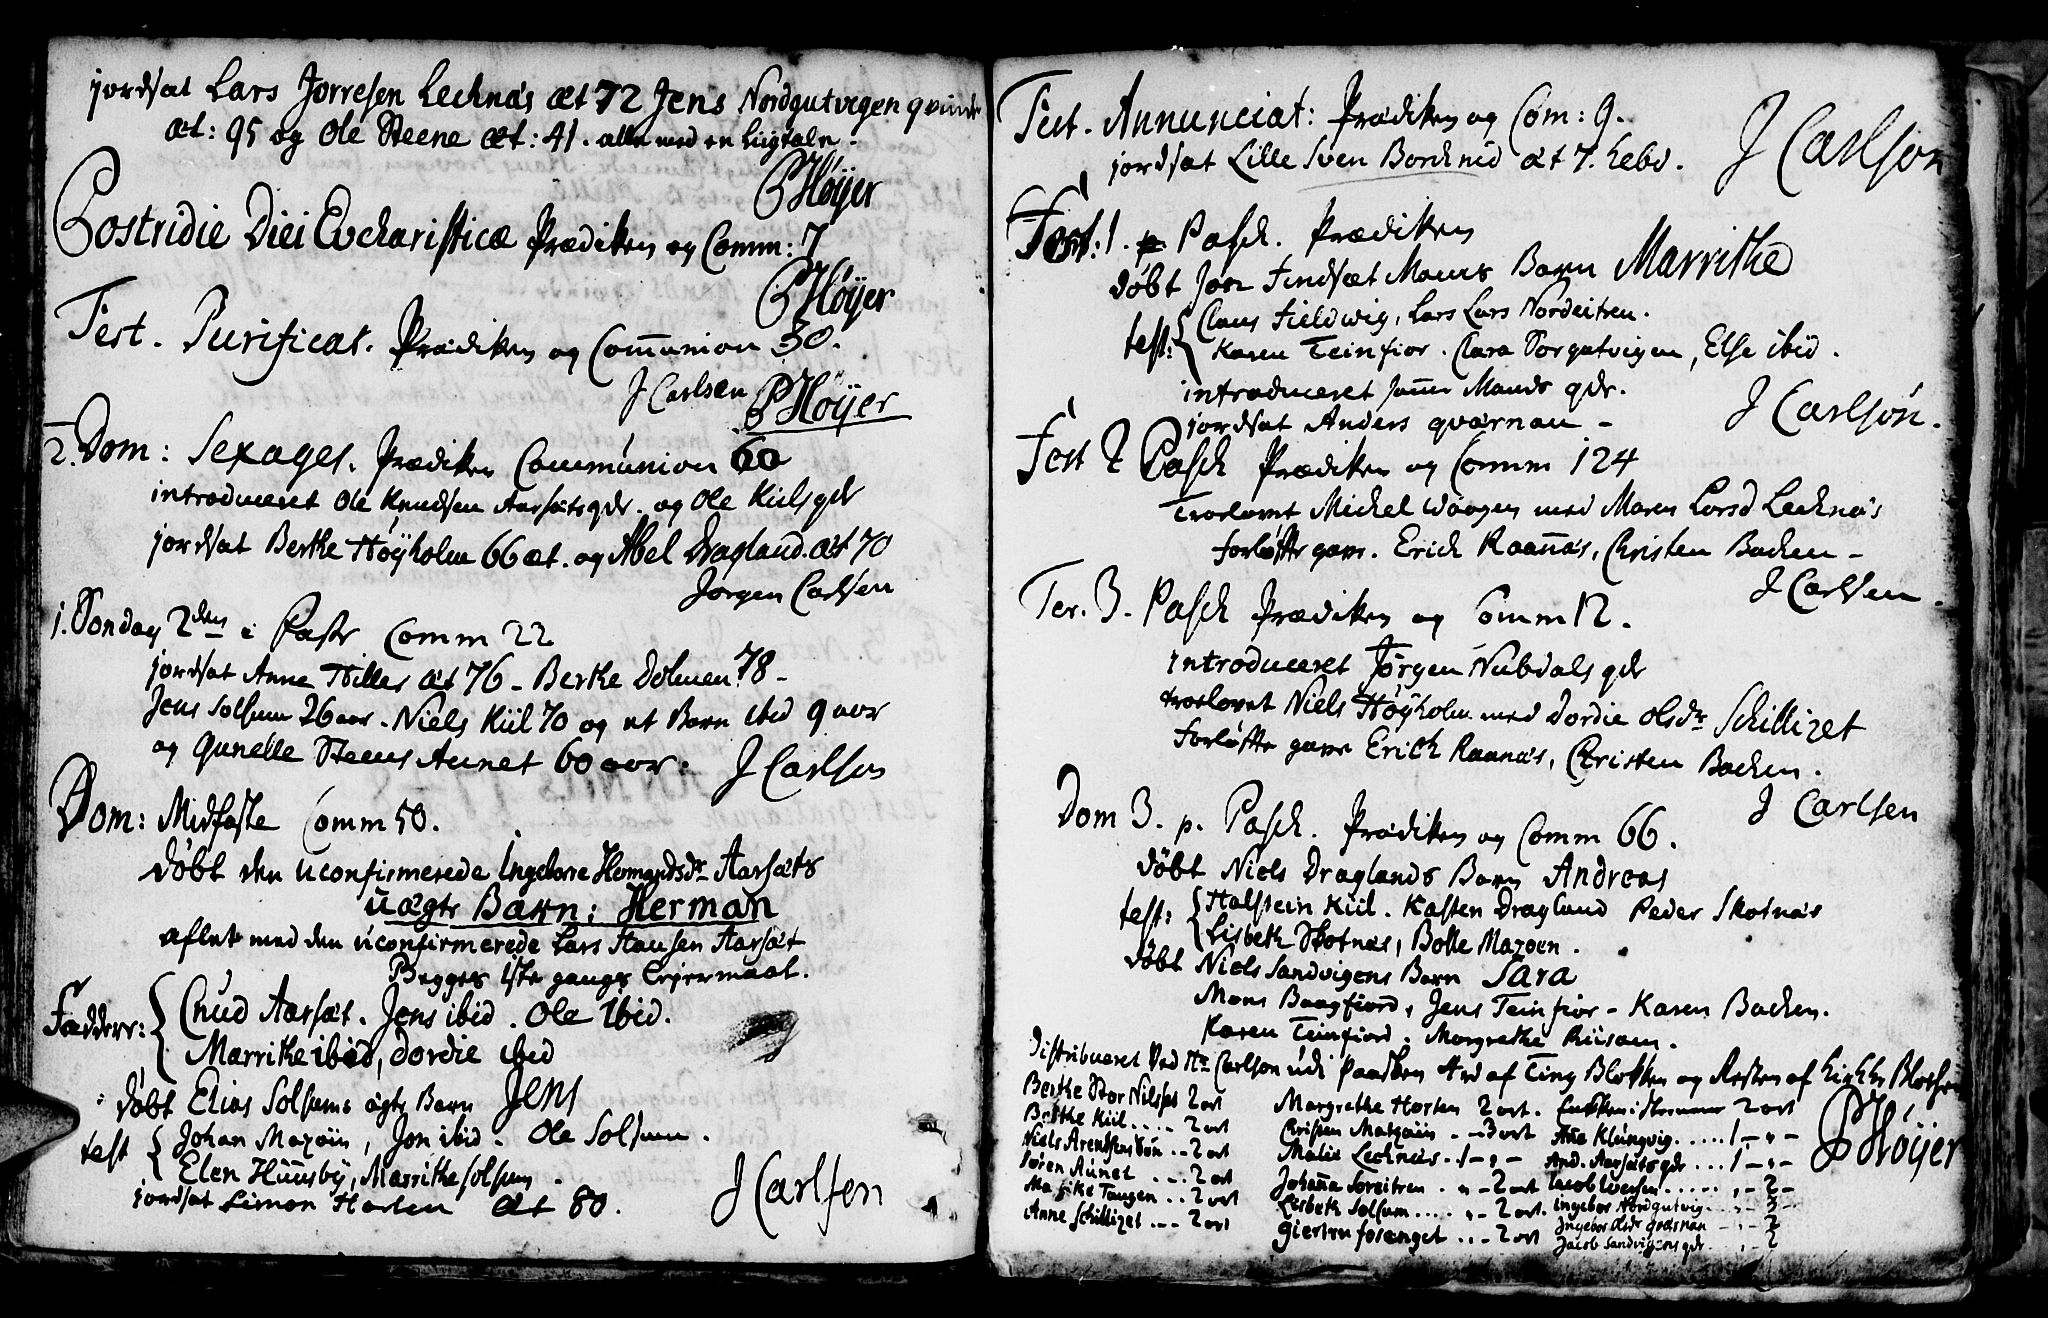 jordsat Lars Jørresen Lecknäs æt 72 Jens Nordgutvigen qvinde
æt: 95 og Ole Steene æt: 41. alle med en liigtale.
P Høÿer
Postridie Diei Evcharisticæ Prædiken og Comm: 7
P Høÿer
Fest. Purificat. Prædiken og Com̄union 30.
J Carlsen P Høÿer
2. Dom: Sexages. Prædiken Communion 60
introduceret Ole Knudsen Aarsæts qdr. og Ole Kiils qdr
jordsat Berthe Høÿholm 66 æt. og Abel Dragland. æt 70
Jørgen Carlsen
1. Søndag 2den i Faste Comm 22
jordsat Anne Hilles æt 76 - Berthe Dolmen 78 -
Jens Solsum 26 aar. Niels Kiil 70 og et Barn ibid 9 aar
og Gunelle Steens Aunet 60 aar.
J Carlson
Dom: Midfaste Comm 50.
døbt den uconfirmerede Ingeborre Hermandsdr Aarsæts
uægte Barn: Herman
aflet med den uconfirmerede Lars Hansen Aarsæt
Begges 1ste gangs Leyermaal.
Faddere: Cnud Aarsæt. Jens ibid. Ole ibid.
Marrithe ibid, Dordie ibid
døbt Elias Solsums ægte Barn Jens
test Johan Mazøin, Jon ibid. Ole Solsum.
Elen Huusbÿ, Marrithe Solsum.
jordsat Simon Horten æt 80.
J Carlsen
Fest. Annunciat: Prædiken og Com: 9.
jordsat Lille Sven Borknid æt 7. hebd.
J Carlson
Fest: 1. Pasch. Prædiken
døbt Jon Findsæt Mours Barn Marrithe
test: Claus Fieldwig, Lars Lars Nordeitren.
Karen Teinfior. Clara Sorgutvigen, Else ibid.
introduceret samme Mands qdr.
jordsat Anders qværnan -
J Carlsøn.
Fest 2 Pasch Prædiken og Comm 124
Trolovet Michel Waagen med Maren Larsd Lecknäs
forløfte gave. Erich Raan̄äs, Christen Backen -
J Carlsen.
Fer. 3. Pasch Prædiken og Comm 12.
introduceret Jørgen Nubdals qdr
trolovet Niels Høÿholm med Dordie Olsdr Schillizet
forløfte gave Erich Raanäs, Christen Backen.
J Carlsen
Dom 3. p. Pasch. Prædiken og Comm 66.
døbt Niels Draglands Barn Andreas
test: Halstein Kiil. Kasten Dragland Peder Skotnäs
Lisbeth Skotnäs, Botle Mazoen.
døbt Niels Sandvigens Barn Sara
Mons Baagfiord, Jens Teinfior - Karen Backen.
Karen Teinfiord. Margrethe Riisam.
Distribueret Ved Hr Carlson udi Paasken Ard af Ting Blokken og Resten af Blokken
Berthe Stor Nilsses 2 ort
Berthe Kiil .... 2 ort
Niels Arentsens Søn .. 2 ort
Søren Aunet ... 2 ort
Ma ike Tangen .. 2 ort
Anne Schillizet ... 2 ort
Margrethe Horten 2 ort.
Christen Matzøiis .. 3 ort
Malie Lecknäs .. 1 - „ -
Johan̄a Soreitren .. „ - 2 ort
Lisbeth Solsum .... „ - 2 ort.
Giertru forenget .. - 2 ort
Enkken i Hermans 2 ort
An̄a Klungvig ..... 1 - „ -
And. Aarsæts qdr .... 1 - „ -
Jacob Iversen ..... „ - 2 -
Ingebor Nordgutvig .. „ - 3 -
Ingebor Olsdr Grøsnan - „ - 2
Jacob Sandvigens qdr .. „ - 2
P Høÿer